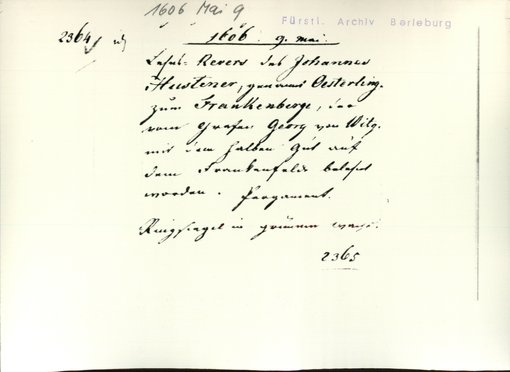 1606 Mai 9
Fürstl. Archiv Berleburg
2364
1606. 9. Mai.
Lehns-Revers des Johannes
Hustener, genannt Oesterling.
zum Frankenberge, der
vom Grafen Georg von Witg.
mit dem halben Gut auf
dem Frankenfelde belehnt
worden. Pergament.
Ringsiegel in grünem Wachs.
2365